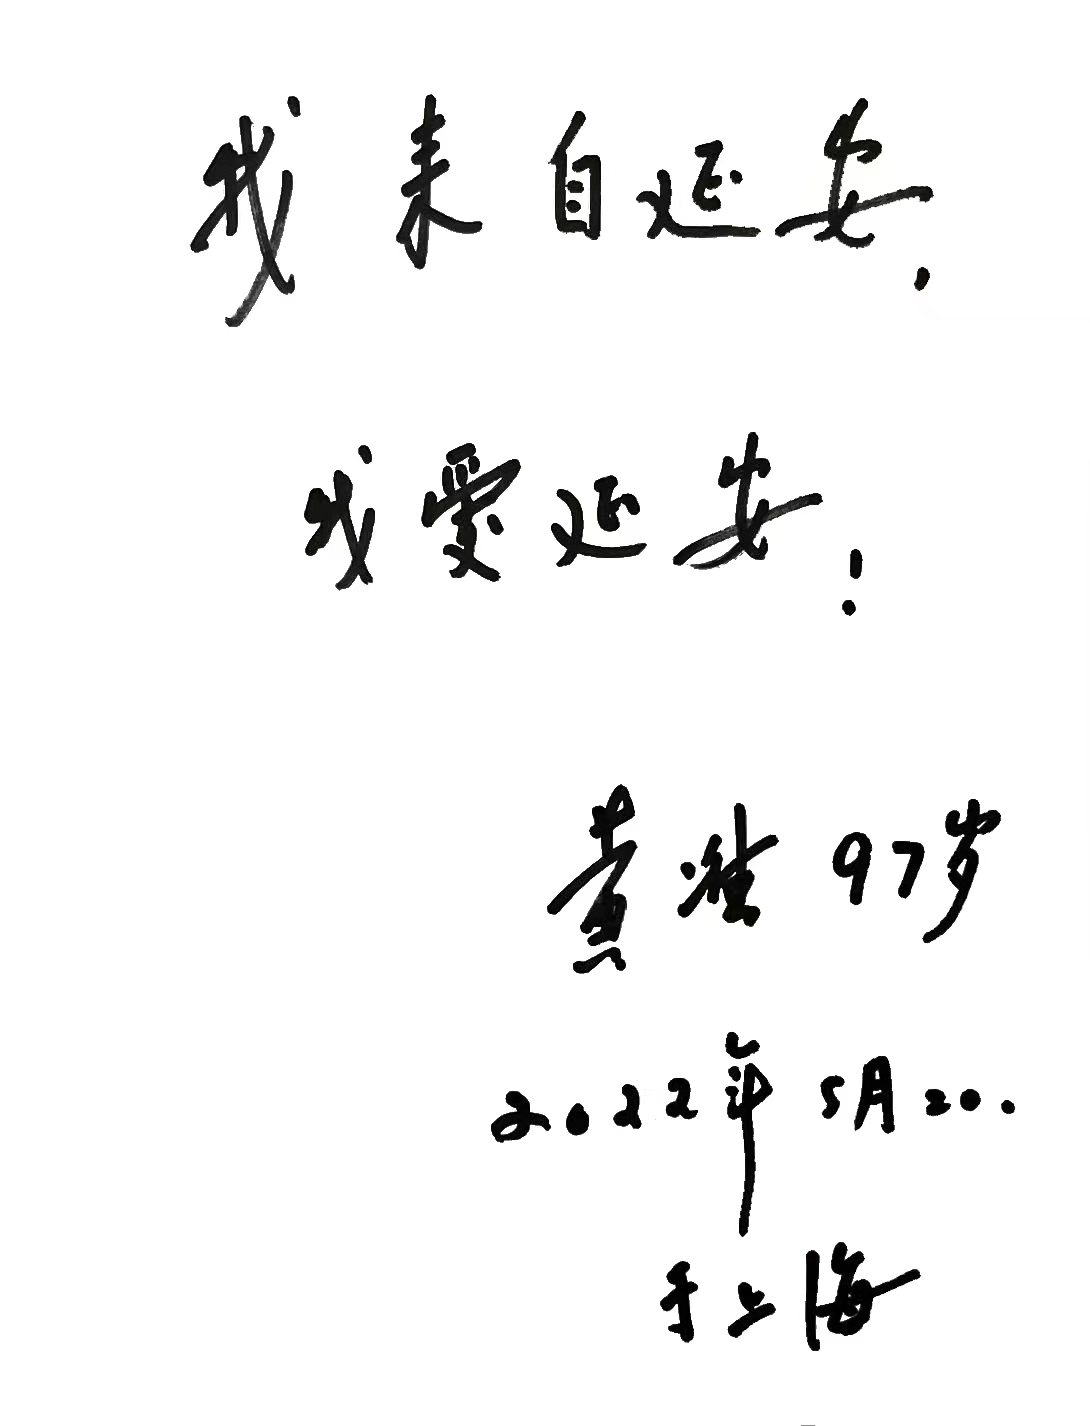 我来自延安.
我愛延安!
黄准 97岁
2022年 5月20.
于上海